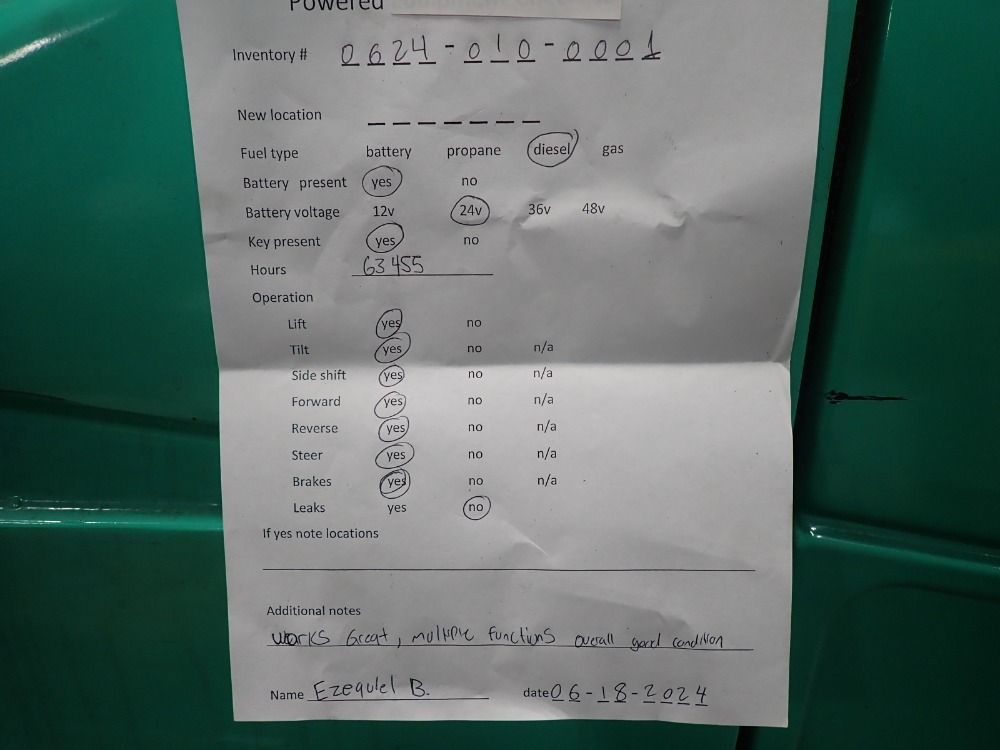 Powered
Inventory # 0624-010-0001
New location _ _ _ _ _ _ _
Fuel type battery propane diesel gas
Battery present yes no
Battery voltage 12v 24v 36v 48v
Key present yes no
Hours 63455
Operation
Lift yes no
Tilt yes no n/a
Side shift yes no n/a
Forward yes no n/a
Reverse yes no n/a
Steer yes no n/a
Brakes yes no n/a
Leaks yes no
If yes note locations
Additional notes
works Great, multiple functions overall good condition
Name Ezequiel B. date 06-18-2024